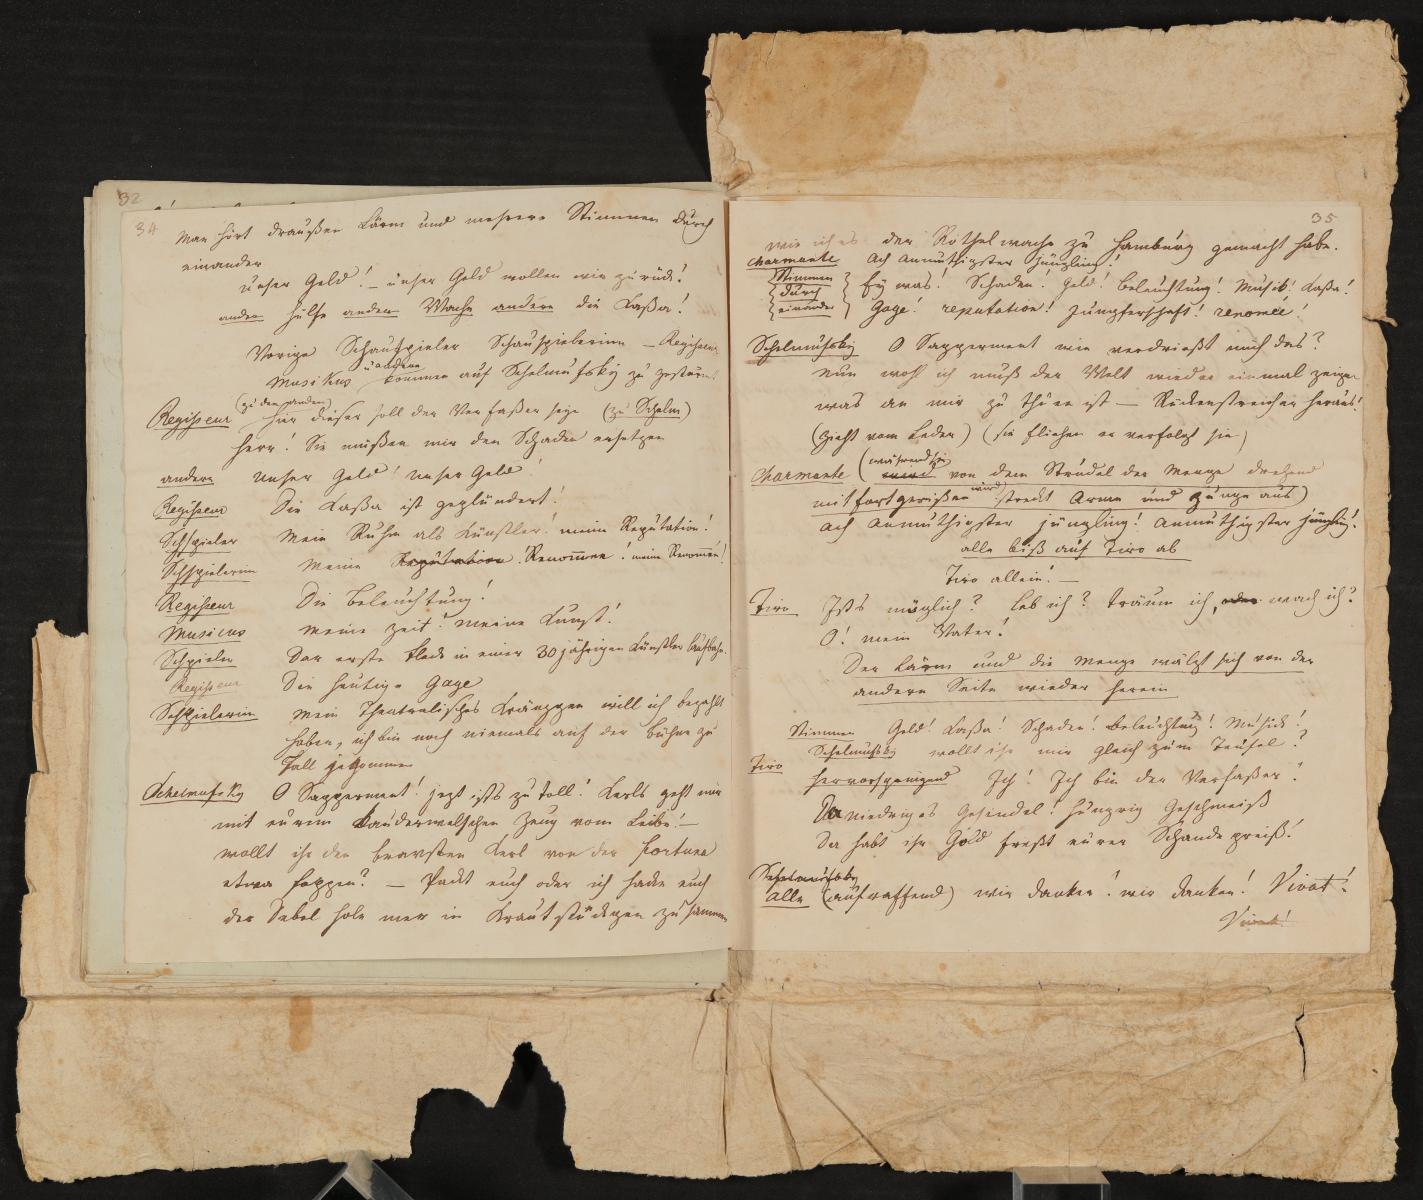 32
34
Man hört draußen Lärm und mehrere Stimmen durch
einander
unser Geld! – unser Geld wollen wir zurück!
andere Hülfe andere Wache andere die Caßa!
Vorige Schauspieler Schauspielerinn – Regisseur
u andere
Musikus kommen auf Schelmufsky zu gestürmt
(zu den andern)
Regisseur Hier dieser soll der Verfaßer seyn (zu Schelm)
Herr! Sie müßen mir den Schaden ersetzen
andere unser Geld! unser Geld!
Regisseur Die Caßa ist geplündert!
Schspieler Mein Ruhm als Künstler! meine Reputation!
Schspielerin Meine Reputation Renommee! meine Renommée!
Regisseur Die Beleuchtung!
Musicus Meine Zeit! meine Kunst!
Schpieler Der erste Fleck in einer 30 jährigen Künstler Laufbahn.
Regisseur Die heutige Gage
Schspielerin Mein Theatralisches Kränzgen will ich bezahlt
haben, ich bin noch niemals auf der Bühne zu
Fall gekommen
Schelmufsky O Sapperment! jezt ists zu toll! Kerls geht mir
mit eurem kauderwelschen Zeug vom Leibe! –
wollt ihr den bravsten Kerl von der Fortune
etwa foppen? – Packt euch oder ich hacke euch
der Tebel hohlmer in Krautstückgen zusammen
35
wie ich es der Rothelwache zu Hamburg gemacht habe.
Charmante Ach anmuthigster Jüngling!
Stimmen
durch
einander
Ey was! Schaden! Geld! Beleuchtung! Musik! Caßa!
Gage! reputation! Jungferschaft! renomée!
Schelmufsky O Sapperment wie verdrießt mich das?
Nun wohl ich muß der Welt wieder einmal zeigen
was an mir zu thuen ist – Rückenstreicher heraus!
(zieht vom Leder) (sie fliehen er verfolgt sie)
(während sie
Charmante wird von dem Strudel der Menge drehend
mit fortgerißen wird streckt Arme und Zunge aus)
ach anmuthigster Jüngling! anmuthigster Jüngling!
alle biß auf Tiro ab
Tiro allein! –
Tiro Ists möglich? Leb ich? träum ich, oder wach ich?
O! mein Vater!
Der Lärm und die Menge wälzt sich von der
andern Seite wieder herein
Stimmen Geld! Caßa! Schaden! Beleuchtung! Musick!
Schelmufsky wollt ihr mir gleich zum Teufel?
Tiro
hervorspringend Ich! Ich bin der Verfaßer!
Du niedriges Gesindel! hungrig Geschmeiß
Da habt ihr Gold freßt eurer Schande preiß!
Schelmufsky
Alle (aufraffend) wir danken! wir danken! Vivat!
Vivat!